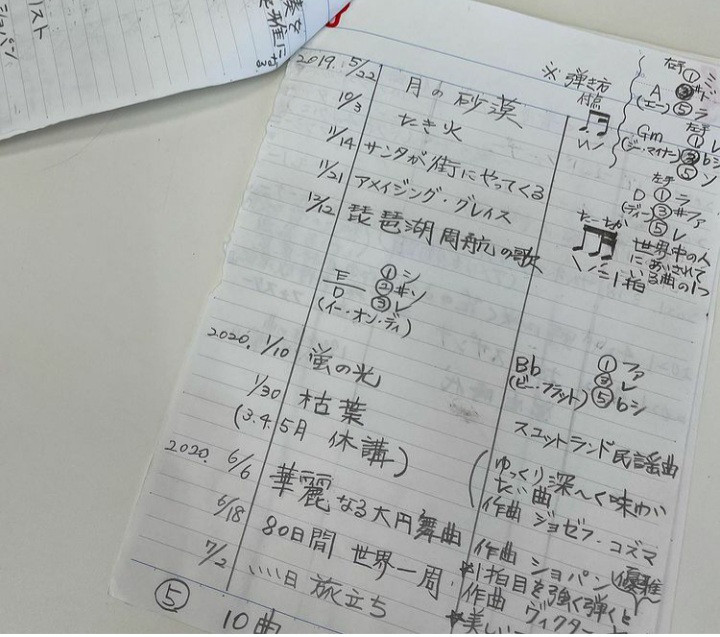 リスト
ショパン
2019. 5/22 月の砂漠
10/3 たき火
11/14 サンタが街にやってくる
11/21 アメイジング・グレイス
12/12 琵琶湖周航の歌
E/D ①シ
②#ソ
③レ
(イー・オン・ディ)
2020. 1/10 蛍の光
1/30 枯葉
(3.4.5月 休講)
2020. 6/6 華麗なる大円舞曲
6/18 80日間 世界一周
7/2 いい日 旅立ち
⑤ 10曲
※弾き方
左手
A
(エー) ⑤ラ
Gm 左手 ①レ
(ジー・マイナー) ③bシ
⑤ソ
左手
D ①ラ
(ディー) ③#ファ
⑤レ
世界中の人
にあいされて
いる曲の1つ
=1拍
Bb ①ファ
(ビー・フラット) ③レ
⑤bシ
スコットランド民謡曲
ゆっくり深〜く味わい
作曲 ジョゼフ・コズマ
作曲 ショパン 優雅
1拍目を強く弾くと
作曲 ヴィクター
美しい